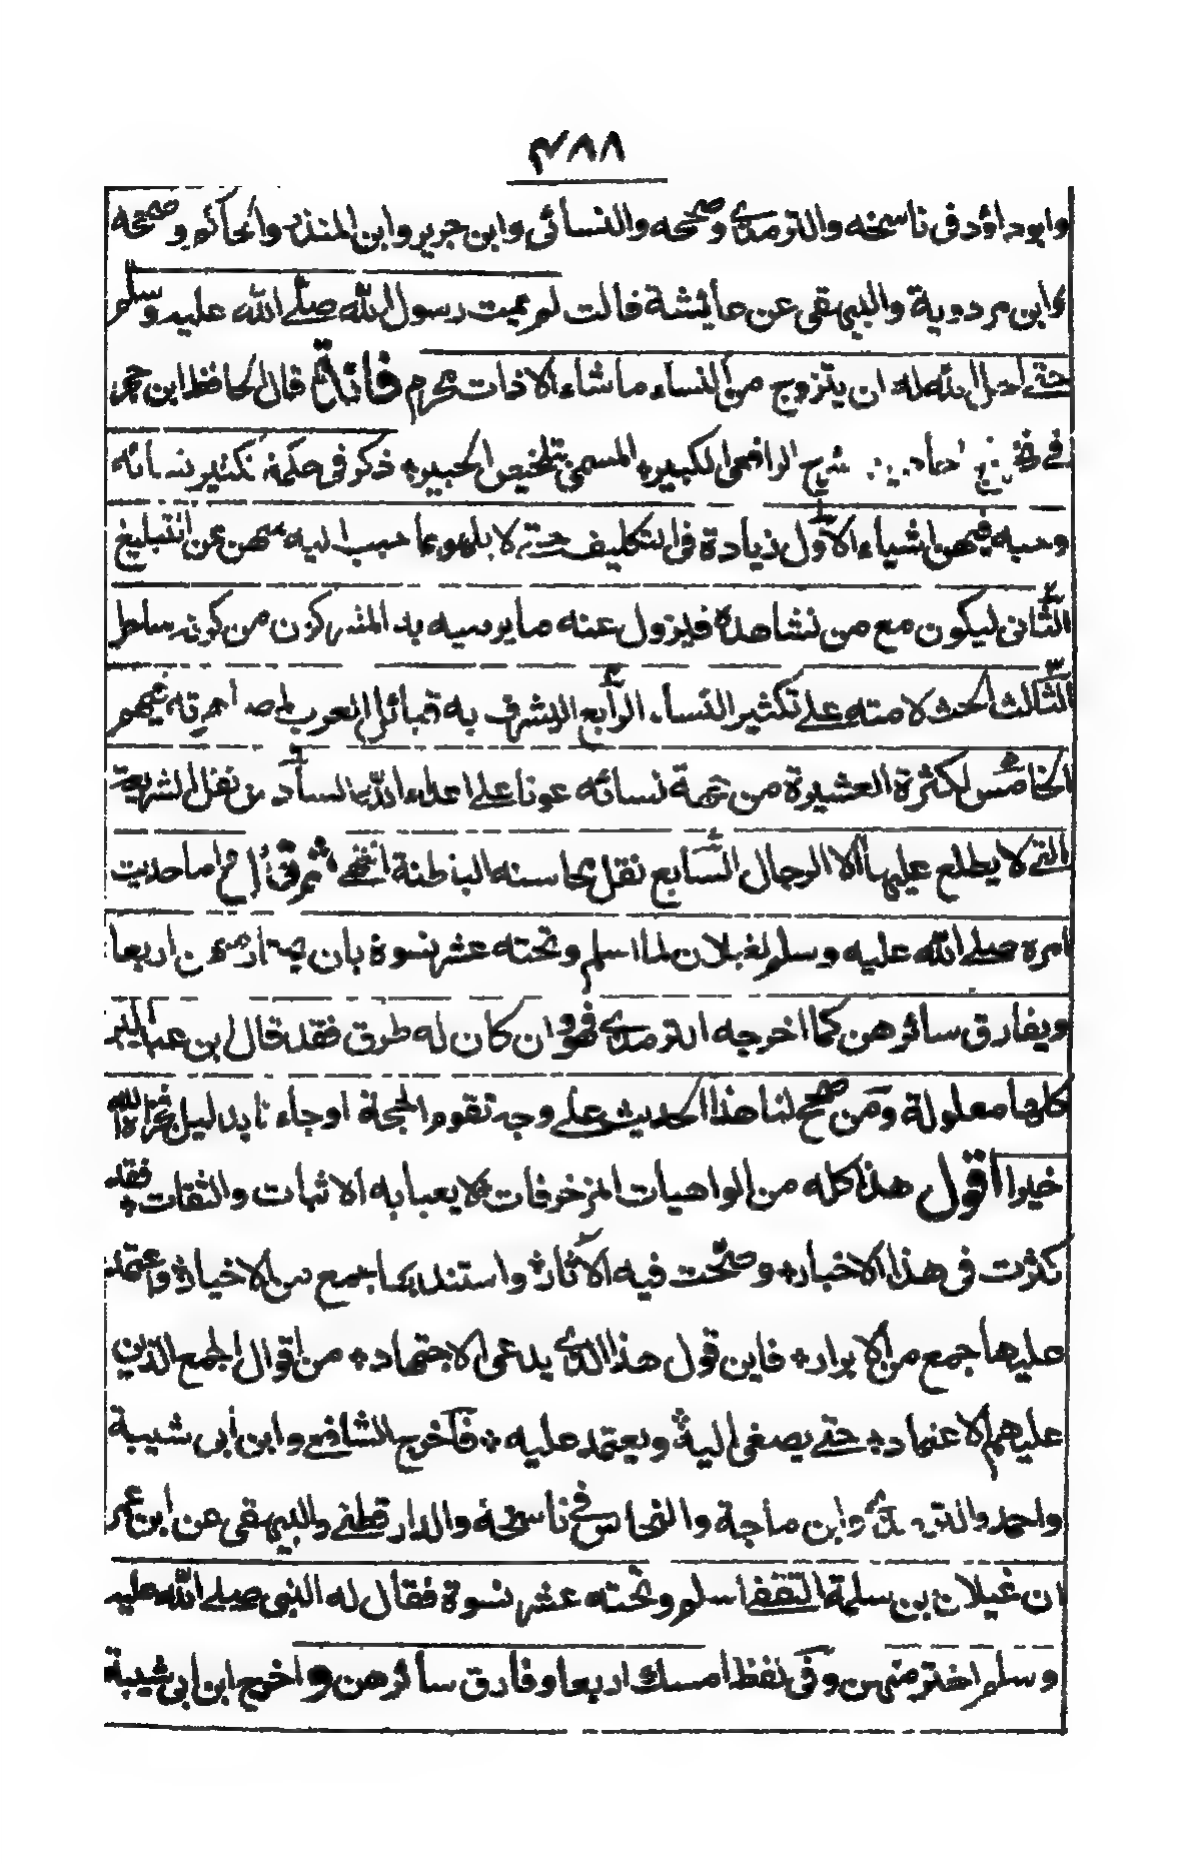 ۴۸۸
وابوداؤد فى ناسخه والترمذى وصححه والنسائى وابن جرير وابن المنذر والحاكم وصححه
وابن مردوية والبيهقى عن عائشة قالت لم يمت رسول الله صلے الله عليه وسلم
حتے احل الله له ان يتزوج من النساء ماشاء الا ذات محرم فائدة قال الحافظ ابن حجر
فے تخريج احاديث شرح الرافعى الكبير؞ المسمى بتلخيص الحبير؞ ذكر فى حكمة تكثير نسائه
وحبه فيهن اشياء الاول زيادة فى التكليف حتے لا يلهو بما حبب اليه منهن عن التبليغ
الثانى ليكون مع من تشاهده فيزول عنه ما يرميه به المشركون من كونه ساحر
الثالث الحث لامته علے تكثير النساء الرابع اليشرف به قبائل العرب لمصاهرته فيهم
الخامس لكثرة العشيرة من جهة نسائه عونا علے اعدائه السادس نقل الشريعة
التے لا يطلع عليها الا الرجال السابع نقل محاسنه الباطنة انتهے ثم قال اما حديث
امره صلے الله عليه وسلم لغيلان لما اسلم وتحته عشر نسوة بان يختار منهن اربعا
ويفارق سائرهن كما اخرجه الترمذى فهو وان كان له طرق فقد قال ابن عبدالبر
كلها معلولة ومن صحح لنا هذا الحديث علے وجه تقوم الحجة اوجاءنا بدليل فجزاه الله
خيرا اقول هذا كله من الواهيات المزخرفات لا يعبا به الاثبات والثقات؞ فقد
كثرت فى هذا الاخبار؞ وصحت فيه الآثار؞ واستند بها جمع من الاخيار؞ واعتمد
عليها جمع من الابرار؞ فاين قول هذا الذى يدعى الاجتهاد؞ من اقوال الجمع الذين
عليهم الاعتماد؞ حتے يصغى اليه؞ ويعتمد عليه؞ فاخرج الشافعے وابن ابى شيبة
واحمد والترمذى وابن ماجة والنحاس فى ناسخه والدارقطنے والبيهقى عن ابن عمر
ان غيلان بن سلمة الثقفے اسلم وتحته عشر نسوة فقال له النبى صلے الله عليه
وسلم اختر منهن وفى لفظ امسك اربعا وفارق سائرهن واخرج ابن ابى شيبة